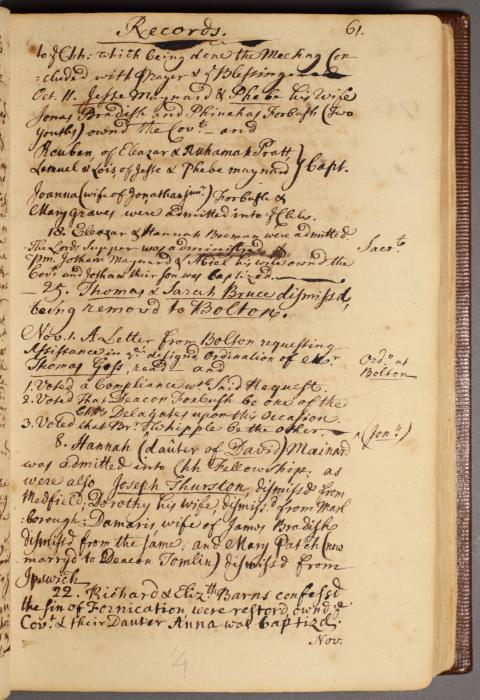 Records. 61.
to ye Chh: which being done the Meeting Con
:cluded with Prayer & ye Blessing.
Oct. 11. Jesse Maynard & Phebe his Wife
Jonas Bradish and Phinehas Forbush (Two
youths) ownd the Covt. and
Reuben of Eleazar & Ruhamah Pratt,
Lemuel & Lois of Jesse & Phebe maynard } Bapt.
Joanna (wife of Jonathan junr.) Forbush &
Mary Graves were admitted into ye Chh.
18. Eleazar & Hannah Boeman were admitted.
The Lords Supper was administred & Sacrt.
P.m. Jotham Maynard & his wife ownd the
Covt. and Jotham their son was baptized.
25. Thomas & Sarah Bruce dismissd,
being removd to Bolton.
Nov. 1. A Letter from Bolton requesting
Assistance in ye designd Ordination of Mr. Ordn. at
Thomas Goss, read and Bolton
1. Voted a Compliance wth. said Request.
2. Voted That Deacon Forbush be one of the
Chhs. Delagates upon this Occasion.
3. Voted that Br. Whipple be the other. ^ (Jonn.)
8. Hannah (dauter of David) Mainard
was admitted into Chh Fellowship: as
were also Joseph Thurston, dismissd from
Medfield; Dorothy his wife dismissd from Marl
:borough; Damaris wife of James Bradish
dismissd from the same; and Mary Patch (now
marryd to Deacon Tomlin) dismissd from
Ipswich
22. Richard & Elizth. Barns confessd
the sin of Fornication were restord, ownd ye
Covt. & their Dauter Anna was baptizd.
Nov.